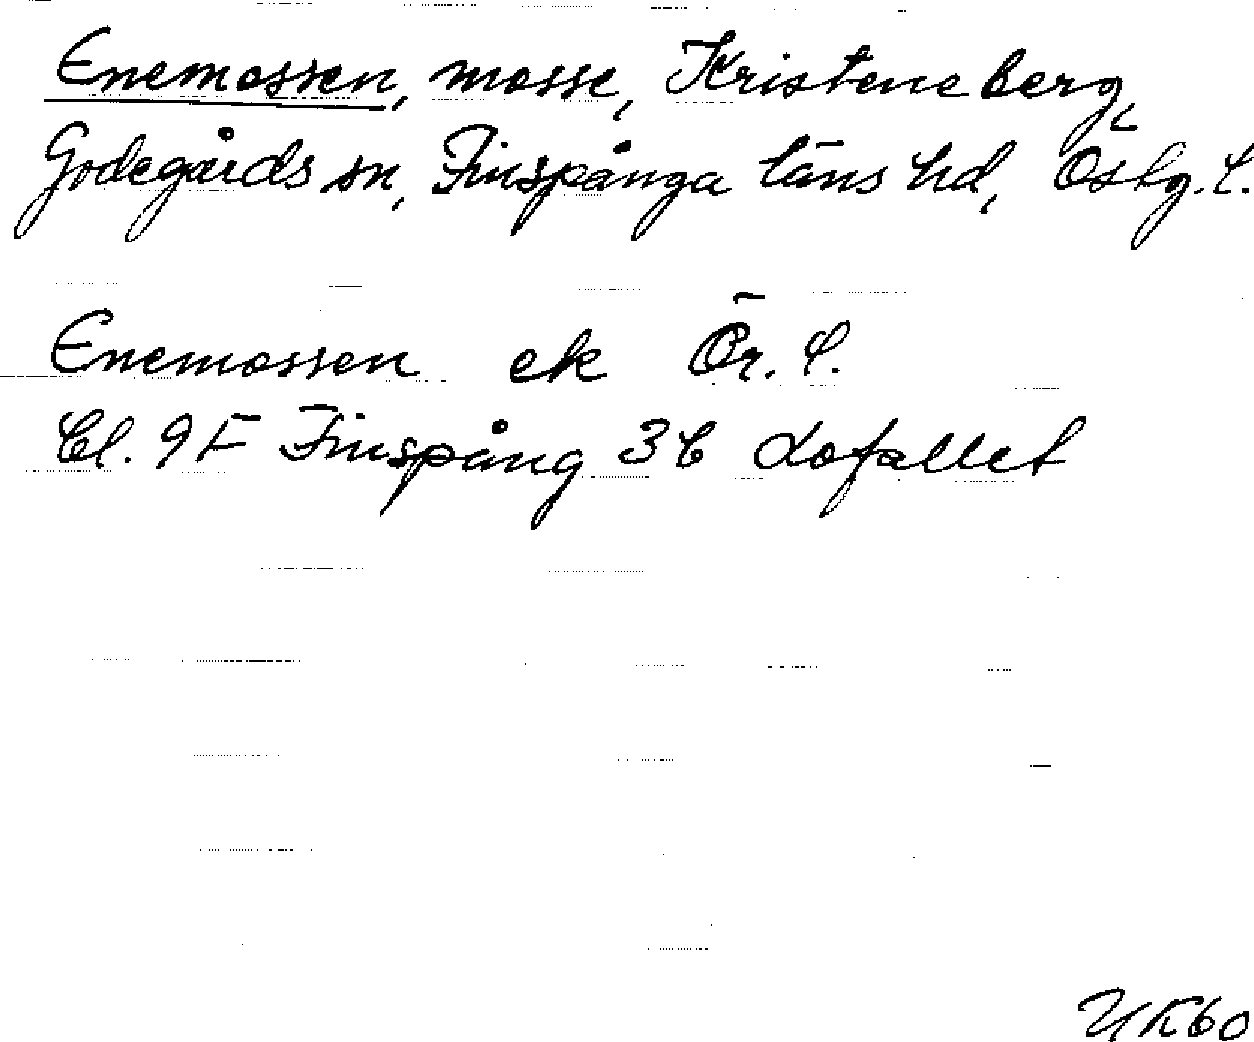 Enemossen, mosse, Kristineberg,
Godegårds sn, Finspånga läns hd, Östg. l.
Enemossen ek Ör. l.
Bl. 9F Finspång 3b Lofallet
UK60